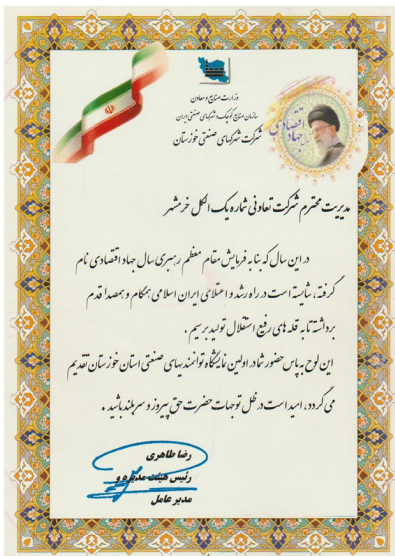 وزارت صنایع و معادن
سازمان صنایع کوچک و شهرکهای صنعتی ایران
شرکت شهرکهای صنعتی خوزستان
جهاد اقتصادی
مدیریت محترم شرکت تعاونی شماره یک الکل خرمشهر
در این سال که بنا به فرمایش مقام معظم رهبری سال جهاد اقتصادی نام
گرفته، شایسته است در راه رشد و اعتلای ایران اسلامی همگام و همصدا قدم
برداشته تا به قله های رفیع استقلال تولید برسیم .
این لوح به پاس حضور شما در اولین نمایشگاه توانمندیهای صنعتی استان خوزستان تقدیم
می گردد، امید است در ظل توجهات حضرت حق پیروز و سربلند باشید .
رضا طاهری
رئیس هیئت مدیره و
مدیر عامل